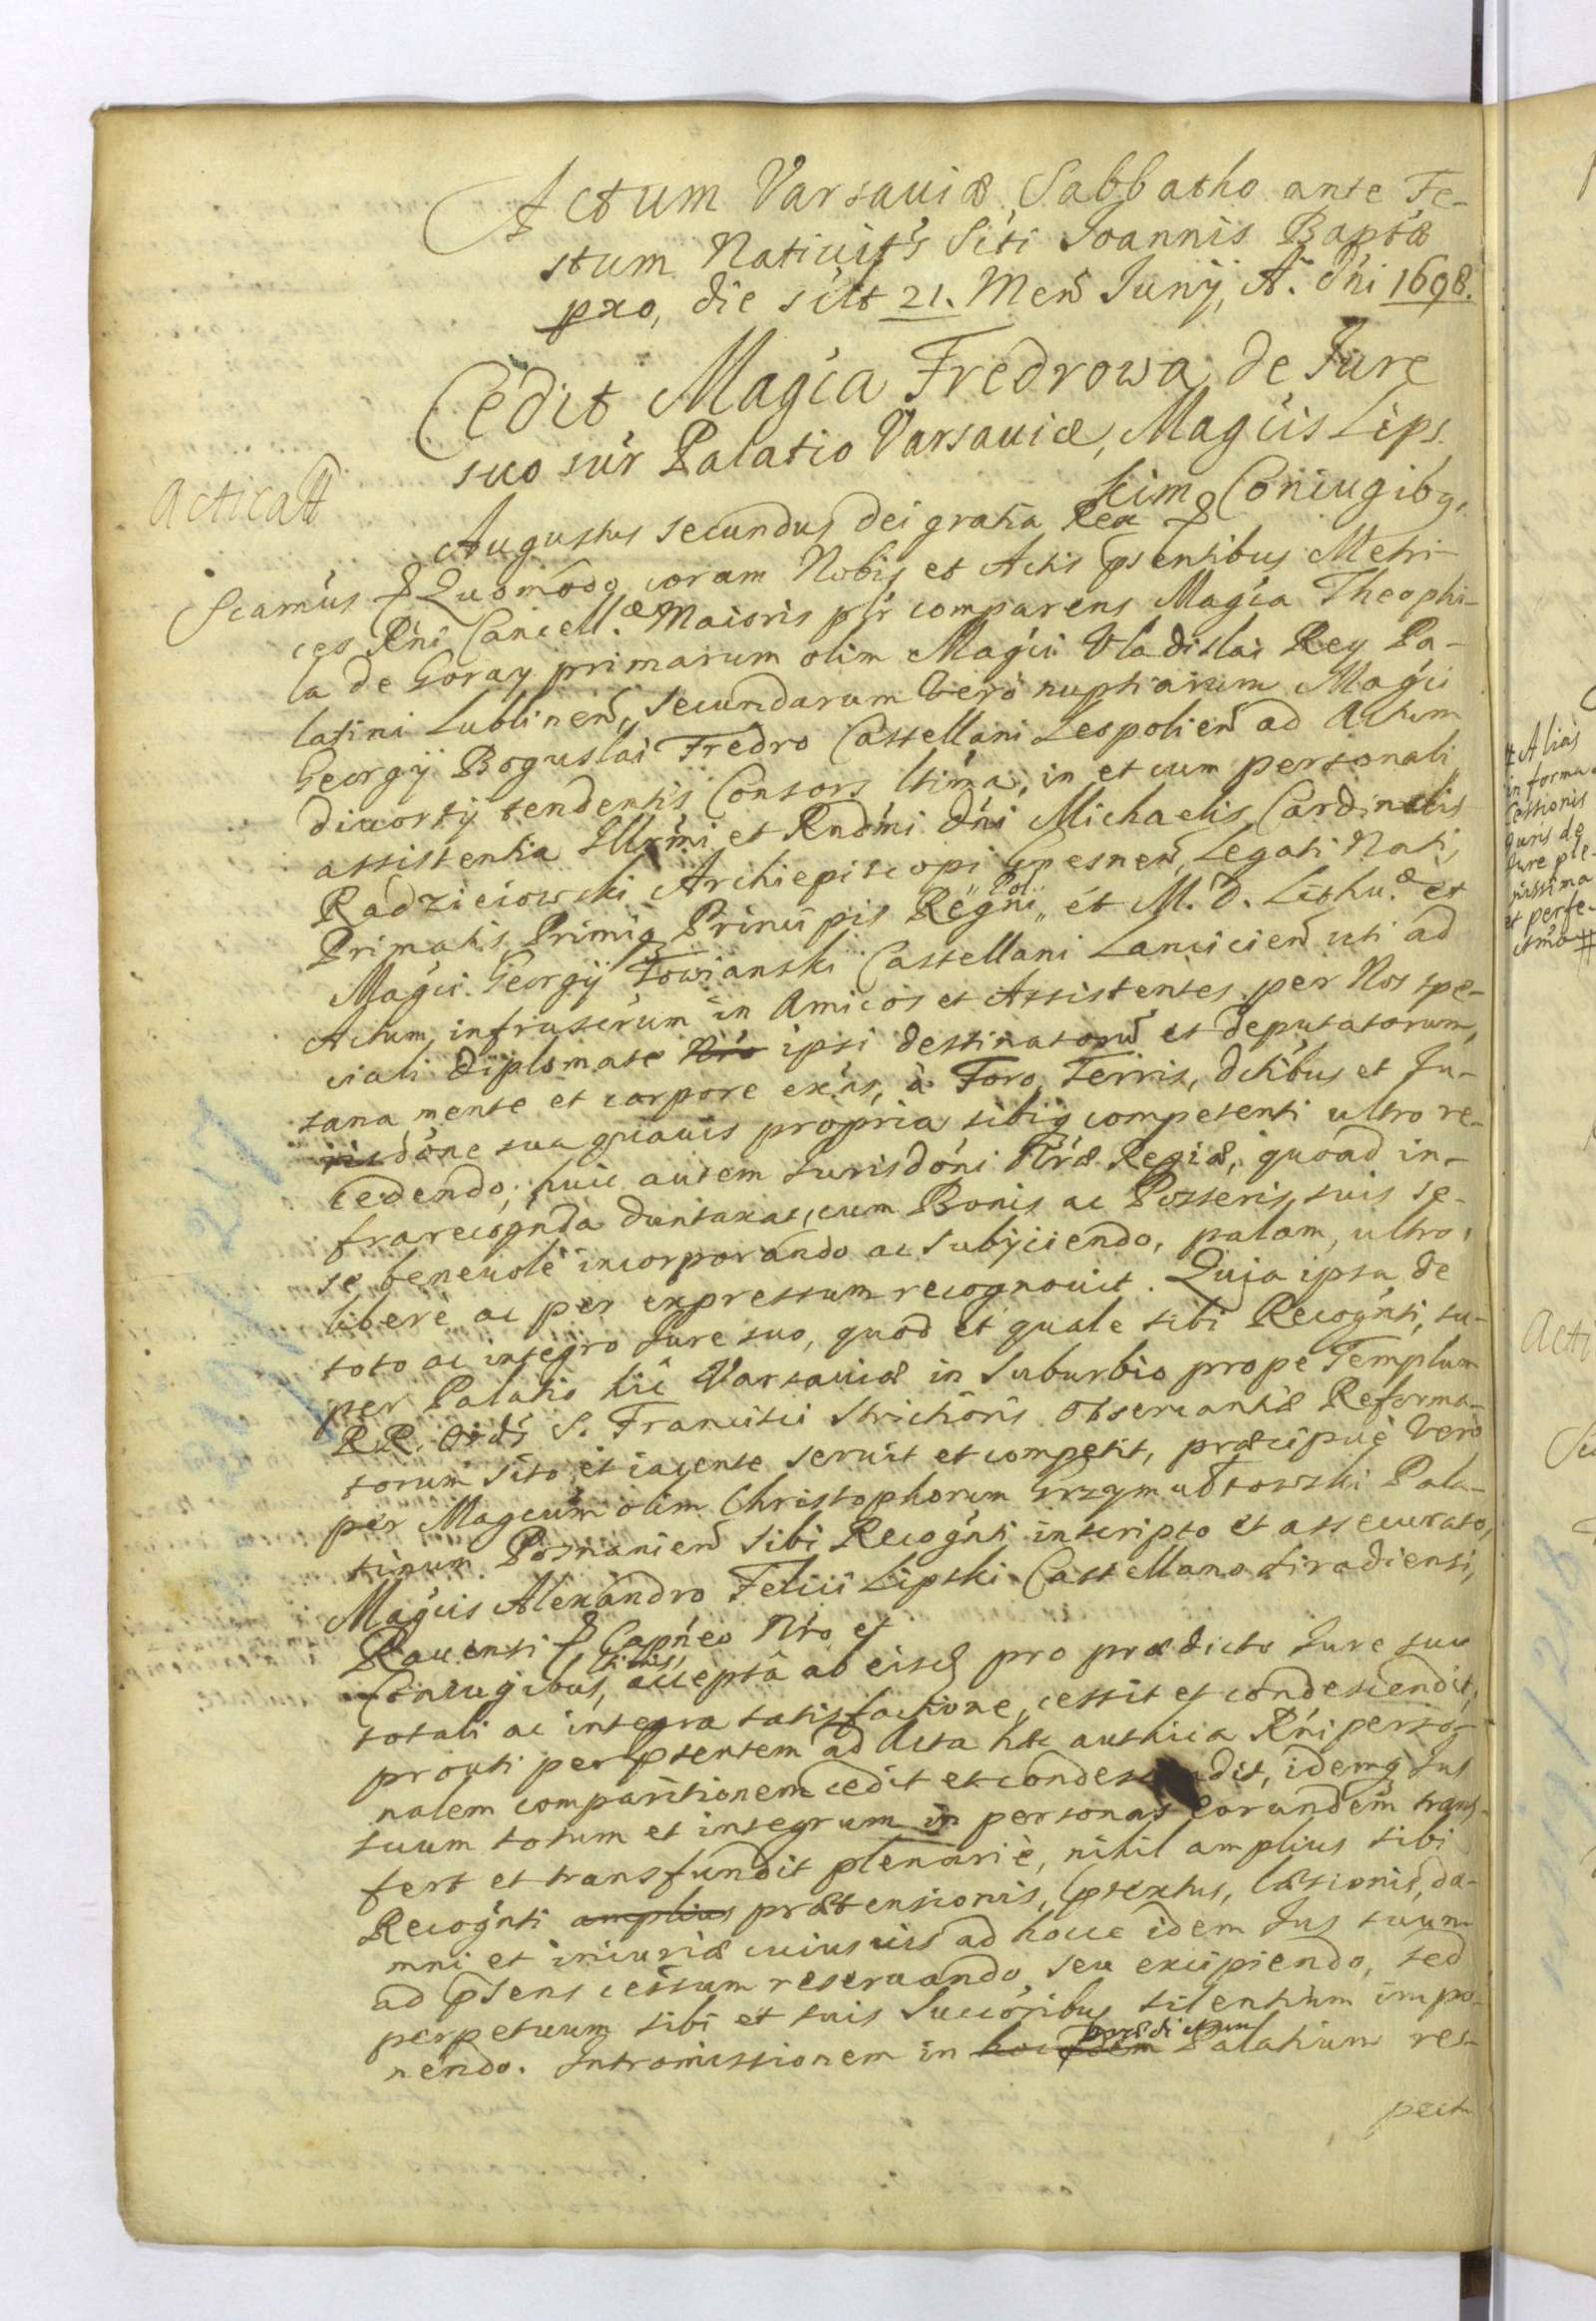 Actum Varsauiæ Sabbatho ante Fe-
stum Natiuit's S'cti Joannis Baptæ
pxo, die scilt 21. Mens Junij, A. Dni 1698.
Cedit Mag'ca Fredrowa de Jure
suo sup'r Palatio Varsauiæ, Mag'cis Lips
kim Coniugibq.
Acticatt
Augustus secundus Dei gratia Rex &
Scamus & Quomodo coram Nobis et Actis psentibus Metri-
ces R'ni Cancell.æ Maioris p'sr comparens Mag'ca Theophi-
la de Goray primarum olim Mag'ci Vladislai Rey Pa-
latini Lublinen, Secundarum vero nuptiarum Mag'ci
Georgij Boguslai Fredro Castellani Leopolien ad Actum
diuortij tendentis Consors ltima, in et cum personali
assistentia Illmi et Rndmi Dni Michaelis Cardinalis
Radzieiowski Archiepiscopi Gnesnen, Legati Nati,
Primatis Primiq Principis Regni Pol: et M. D. Lithu.æ et
Mag'ci Georgij Towianski Castellani Lancicien uti ad
Actum infrascrum in Amicos et Assistentes per Nos spe-
ciali Diplomate N'ro ipsi destinatoru et deputatorum,
sana mente et corpore ex'ns, à Foro, Terris, Dctibus et Ju-
risdone sua quauis propria sibiq competenti ultro re-
cedendo; huic autem Jurisdoni N'ræ Regiæ, quoad in-
frarecog'nda duntaxat, cum Bonis ac Posteris suis se
se beneuolè incorporando ac subijciendo, palam, ultro,
liberè ac per expressum recognouit. Quia ipsa de
toto ac integro Jure suo, quod et quale sibi Recog'nti, su-
per Palatio hic Varsauiæ in Suburbio prope Templum
RR. Ord's S. Francisci Strictioris obseruantiæ Reforma-
torum sito et iacente seruit et competit, præcipuè vero
per Mag'cum olim Christophorum Grzymułtowski Pala-
tinum Posnanien sibi Recog'nti inscripto et assecurato,
Mag'cis Alexandro Felici Lipski Castellano Siradiensi,
Rauensi & Cap'neo N'ro et
Coniugibus, ltimis, acceptâ ab eisd pro prædicto Jure suo
totali ac integra satisfactione, cessit et condescendit,
prouti per psentem ad Acta hæc authica R'ni perso-
nalem comparitionem cedit et condescendit, idemq Jus
suum totum et integrum in personas eorundem trans-
fert et transfundit plenariè, nihil amplius sibi
Recog'nti amplius prætensionis, prextus, læsionis, da-
mni et iniuriæ cuiusuis ad hocce idem Jus suum
ad psens cessum reseruando, seu excipiendo, sed
perpetuum sibi et suis Succoribus silentium impo-
nendo. Intromissionem in hoc idem prædictum Palatium res-
pectu
# Alias
in forma
Cessionis
Juris de
Jure ple-
nissima
et perfe-
ctma #
Acti